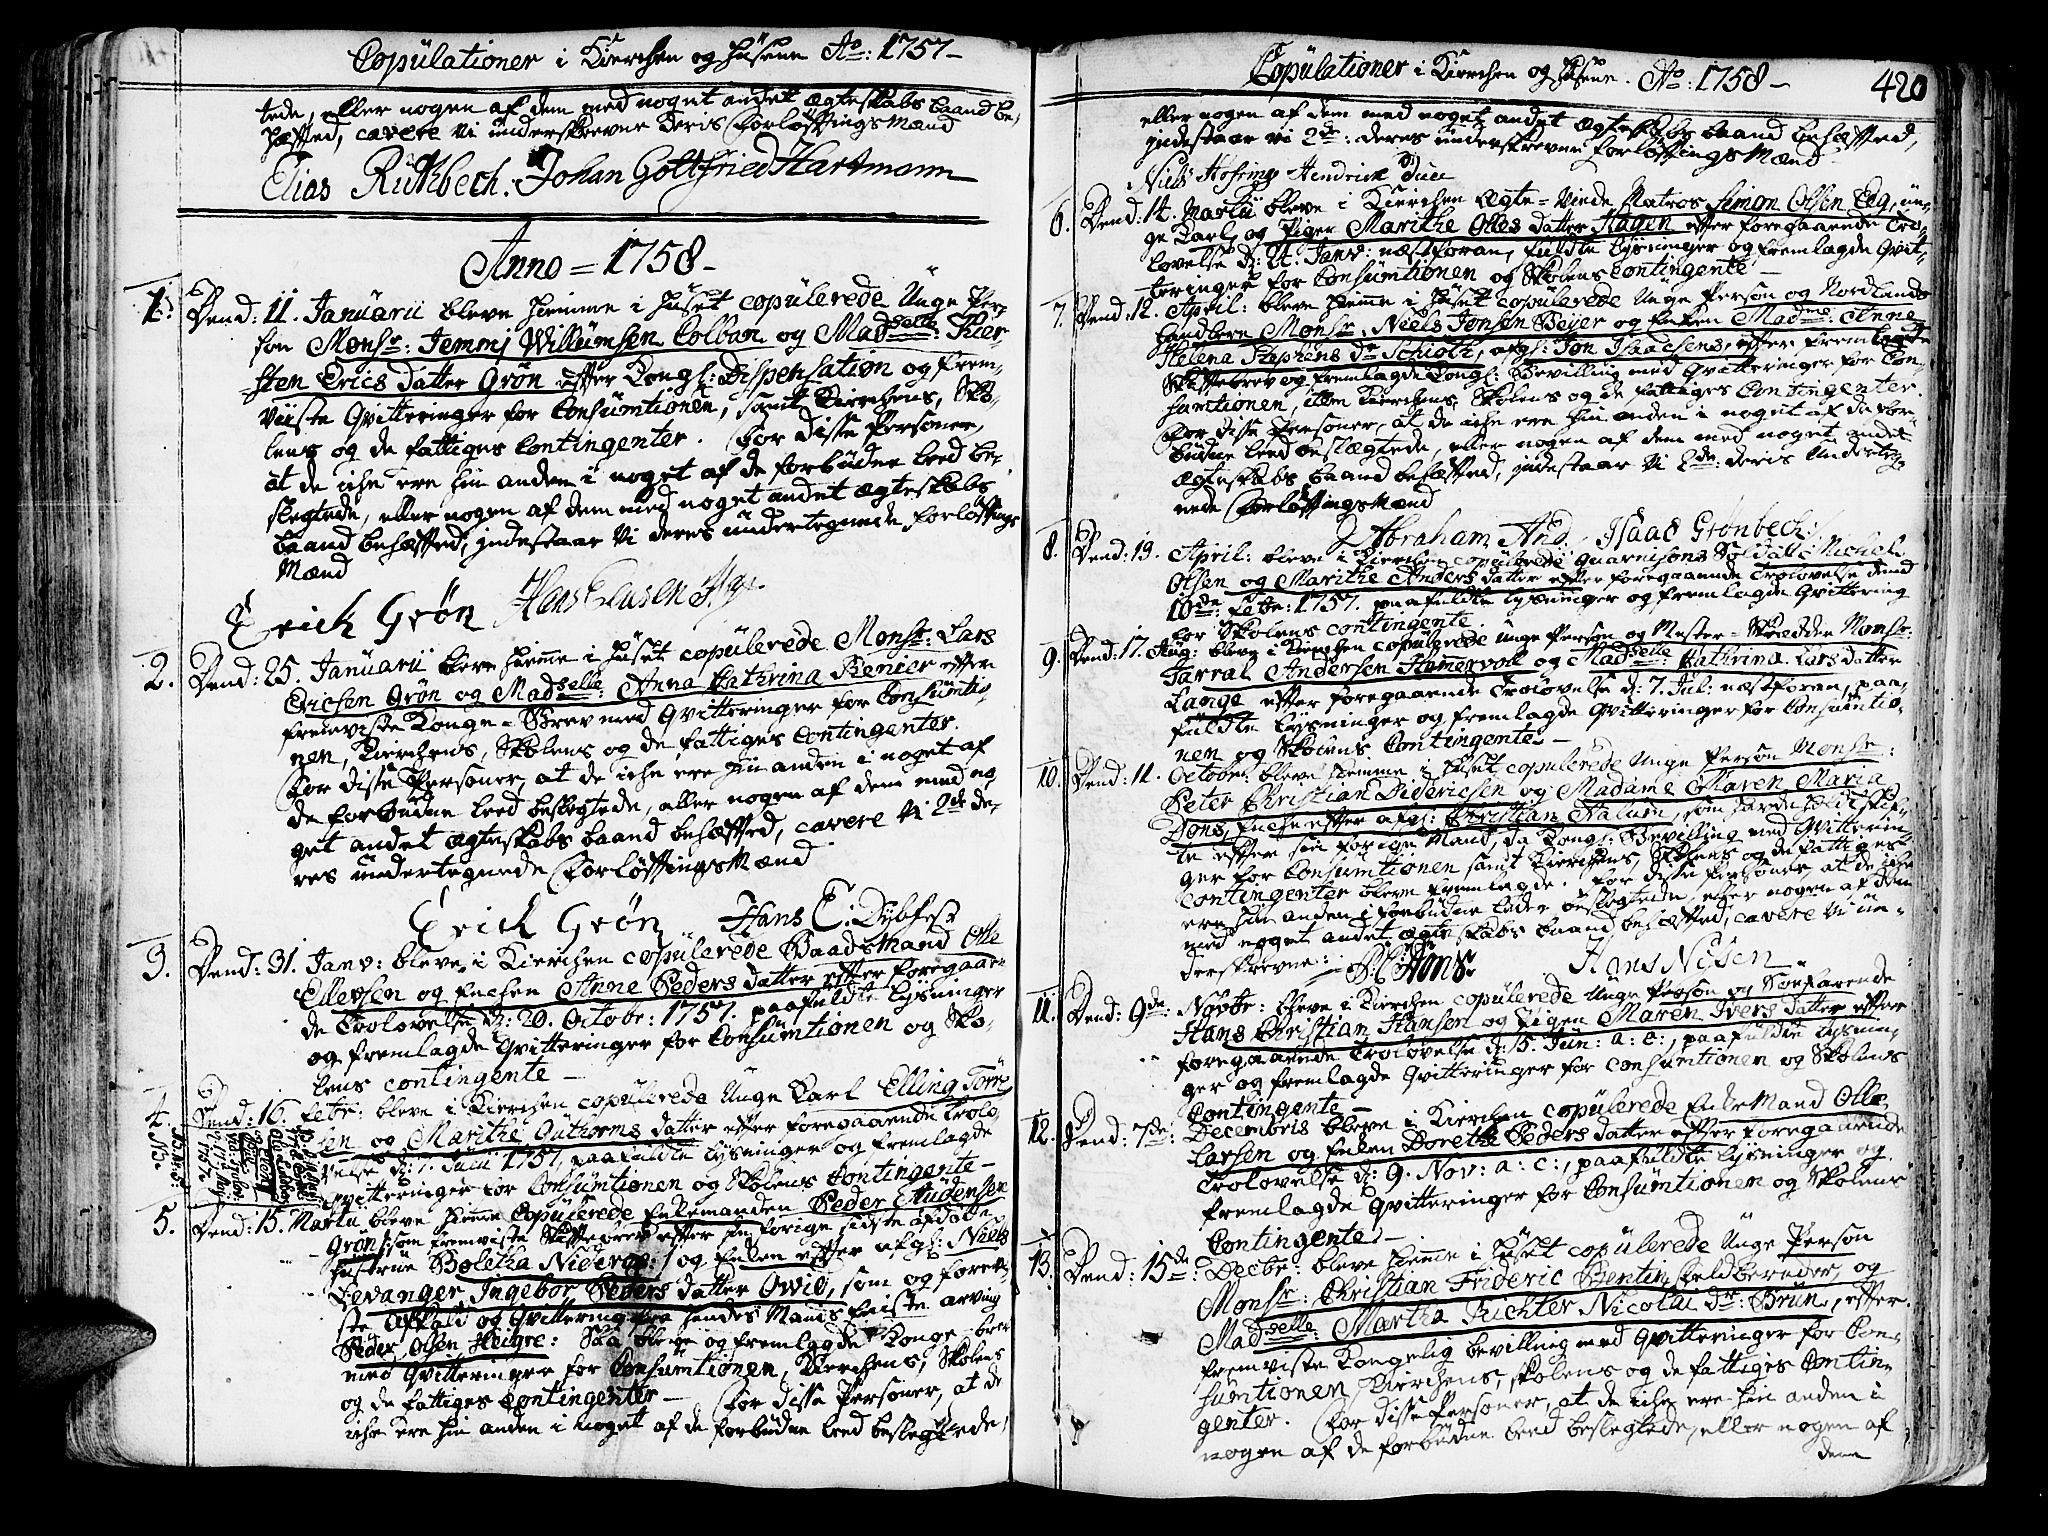 Copülationer i Kierchen og Hüsene Ao: 1757-
tede, eller nogen af dem med noget andet Ægteskabs baand be-
hæfted, cavere Vi underskrevne deris Forløftnings Mænd
Elias Rükbech. Johan Gottfried Hartmann
Anno = 1758-
1. Dend: 11. Januarii bleve hiemme i Hüset copülerede Unge Per-
son Monsr: Jemmj Willümsen Colban og Madselle: Kier-
sten Erics datter Grøn efter Kongl: Dispensation og frem-
viiste Qvitteringer for Consümtionen, samt Kierchens, Sko-
lens og de fattiges Contingenter. For disse Personer,
at de iche ere hin anden i noget af de forbüdne leed be-
slegtede, eller nogen af dem med noget andet Ægteskabs
baand behæfted, indestaar Vi deres ündertegnede forløftnings
Mænd
Erick Grøn Hans
2. Dend: 25. Januarii bleve hiemme i Hüset copülerede Monsr: Lars
Ericsen Grøn og Madselle: Anna Cathrina Benier efter
fremviste Konge-Brev med Qvitteringer for Consümtio
nen, Kierchens, Skolens og de fattiges Contingenter.
For disse Personer, at de iche ere hin anden i noget af
de forbüdne leed beslegtede, eller nogen af dem med no
get andet Ægteskabs baand behæfted, cavere Vi 2de de-
res ündertegnede Forløftnings Mænd
Erick Grøn Hans C: Dybfest
3. Dend: 31. Janv: bleve i Kierchen copülerede Baadsmand Olle
Ellevsen og Enchen Anne Peders datter efter foregaaen
de Trolovelse d: 20. Octobr: 1757. paafuldte Lysninger
og fremlagde Qvitteringer for Consümtionen og Sko-
lens contingente-
4. Dend: 16. Febr: bleve i Kierchen copülerede Unge Karl Elling Torre
sen og Marithe Güthorms datter efter foregaaende Trolo
velse d: 7. Julii 1757, paafuldte Lysninger og fremlagde
Qvitteringer for Consümtionen og Skolens Contingente-
5. Dend: 15. Martii bleve hiemme Copülerede Enkemanden Peder Aüdensen
Grøn /: som fremviste Skiftebrev efter hans forige sidste afdøde
hustrue Boletha Niderop :/ og Enken efter afgl: Niels
Levanger Ingebor Peders datter Owid, som og forevi-
ste afkald og Qvittering fra hendes Mands Eniste arving
Peder Olsen Heigre: Saa bleve og fremlagde Konge-brev
med Qvitteringer for Consümtionen, Kierchens, Skolens
og de fattiges Contingenter- For disse Personer, at de
iche ere hin anden i noget af de forbüdne leed beslegtede,
Copülationer i Kierchen og Hüsene. Ao: 1758- 420
eller nogen af dem med noget andet Ægteskabs baand behæfted,
indestaar Vi 2de: deres ünderskrevne Forløftnings Mænd
Niels Hendrich
6. Dend: 14. Martii bleve i Kierchen Ægte-Viede Matros Simon Olsen Eeg, ün-
ge Karl og Piger Marithe Olles datter Hagen efter foregaaende Tro-
lovelse d: 4. Janv: næstforan, fuldte Lysninger og fremlagde Qvit-
teringer for Consümtionen og Skolens Contingente-
7. Dend: 12. April: bleve hiemme i Hüset copülerede Unge Person og Nordlands
Monsr: Niels Jonsen Beyer og Enken Madme: Anne
Helena Stephens dr Schiøth, afgl: Jon Isaacsens, efter fremlagde
Skiftebrev og fremlagde Kongl: Bevilling med Qvitteringer for Con-
sumtionen, item Kierchens, Skolens og de fattiges Contingenter.
For disse Personer, at de iche ere hin anden i noget af de for-
büdne leed beslægtede, eller nogen af dem med noget andet
Ægteskabs baand behæfted, indestaar Vi 2de: deris Underteg-
nede Forløftnings Mænd
Abraham And. Isaac Grønbech:/
8. Dend: 19. April: bleve i Kierchen copülerede Guarnisons Soldatt Michel
Olsen og Marithe Anders datter efter foregaaende Trolovelse dend
10de: Febr: 1757. paafuldte Lysninger og fremlagde Qvittering
for Skolens contingente.
9. Dend: 17. Aug: bleve i Kierchen copülerede Unge Person og Mester-Skredder Monsr:
Tarral Andersen Hamervoll og Madselle: Cathrina Lars datter
Lange efter foregaaende Trolovelse d: 7. Jul: næstforan, paa-
fuldte Lysninger og fremlagde Qvitteringer for Consümtio-
nen og Skolens Contingente-
10. Dend: 11. October: bleve hiemme i Hüset copülerede Unge Person Monsr:
Peter Christian Didericsen og Madame Maren Maria
Dons, Enche efter afgl: Christian Halüm, som havde holdt Skif-
te efter sin forige Mand, da Kongl: Bevilling med Qvitterin-
ger for Consümtionen samt Kierchens, Skolens og de fattiges
Contingenter bleve fremlagde. For disse Personer, at de iche
ere hin anden i forbüdne Leder beslegtede, eller nogen af dem
med noget andet Ægteskabs baand behæfted, cavere Vi ün-
derskrevne: Dons: Hans Nysen
11. Dend: 9de: Novbr: bleve i Kierchen copülerede Unge Person og Søefarende
Hans Christian Hansen og Pigen Maren Ivers datter efter
foregaaende Trolovelse d: 15. Jun: a: c:, paafuldte Lysnin-
ger og fremlagde Qvitteringer for consumtionen og Skolens
Contingente-
12. Dend: 7de: Decembris bleve i Kierchen copülerede Enke Mand Olle
Larsen og Enken Dorethe Peders datter efter foregaaende
Trolovelse d: 9. Nov: a: c:, paafuldte Lysninger og
fremlagde Qvitteringer for Consümtionen og Skolens
Contingente-
13. Dend: 15de: Decbr: bleve hiemme i Hüset copülerede Unge Person
Monsr: Christian Frideric Bentin, Feldbereder, og
Madselle: Martha Richter Nicolai dr: Brün, efter
fremviste Kongelig bevilling med Qvitteringer for Con-
sümtionen, Kierchens, Skolens og de fattiges Contin-
genter. For disse Personer, at de iche ere hin anden i
nogen af de forbüdne leed beslegtede, eller nogen af
dem